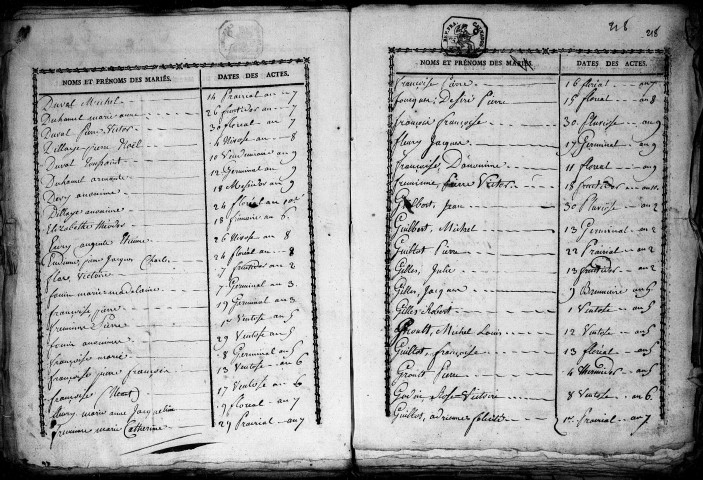 NOMS ET PRÉNOMS DES MARIÉS. DATES DES ACTES.
Duval Michel 14 Prairial an 7
Duhamel marie anne 26 fructidor an 7
Duval Pierre Victor 30 floréal an 7
Dillaye pierre Noël 4 Nivose an 8
Duval Toussaint 10 Vendemiaire an 9
Duhamel armante 12 Germinal an 9
Devy anonime 18 Messidor an 9
Dillaye anonime 24 floréal an
Elizabethe 18 frimaire an 6
auguste Etienne 26 Nivose an 8
pierre Jacques Charles 24 floréal an 8
Victoire 7 fructidor an 2
marie magdelaine 7 Germinal an 3
françoise pierre 19 Germinal an 3
fremine Pierre 1er Ventose an 5
anonime 29 Ventose an 5
françoise marie 8 Germinal an 5
françoise pierre françois 13 Ventose an 6
françoise 17 Ventose an 6
fleury marie anne Jacqueline 9 floreal an 7
fremine marie Catherine 29 Prairial an 7
218 218
NOMS ET PRÉNOMS DES MARIÉS. DATES DES ACTES.
françoise 16 floréal an 7
Désiré Pierre 15 floreal an 8
françoise 30 Pluviose an 9
fleury Jacques 17 Germinal an 9
françoise, anonime 11 floreal an 9
fremine, Pierre Victor 18 fructidor an
Guilbert, Jean 30 Pluviose an 2
Guilbert, Michel 13 Germinal an 2
Guillot Pierre 22 Prairial an 2
Gilles, Julie 13 fructidor an 2
Gilles, Jacques 9 Brumaire an 5
Gilles Robert 1 Ventose an 5
Groult, Michel Louis 12 Ventose an 5
Guillot, françoise 13 floréal an 5
Groult Pierre 4 Thermidor an 5
Rose Victoire 8 Ventose an 6
Guillot, adrienne felicité 1er Prairial an 7